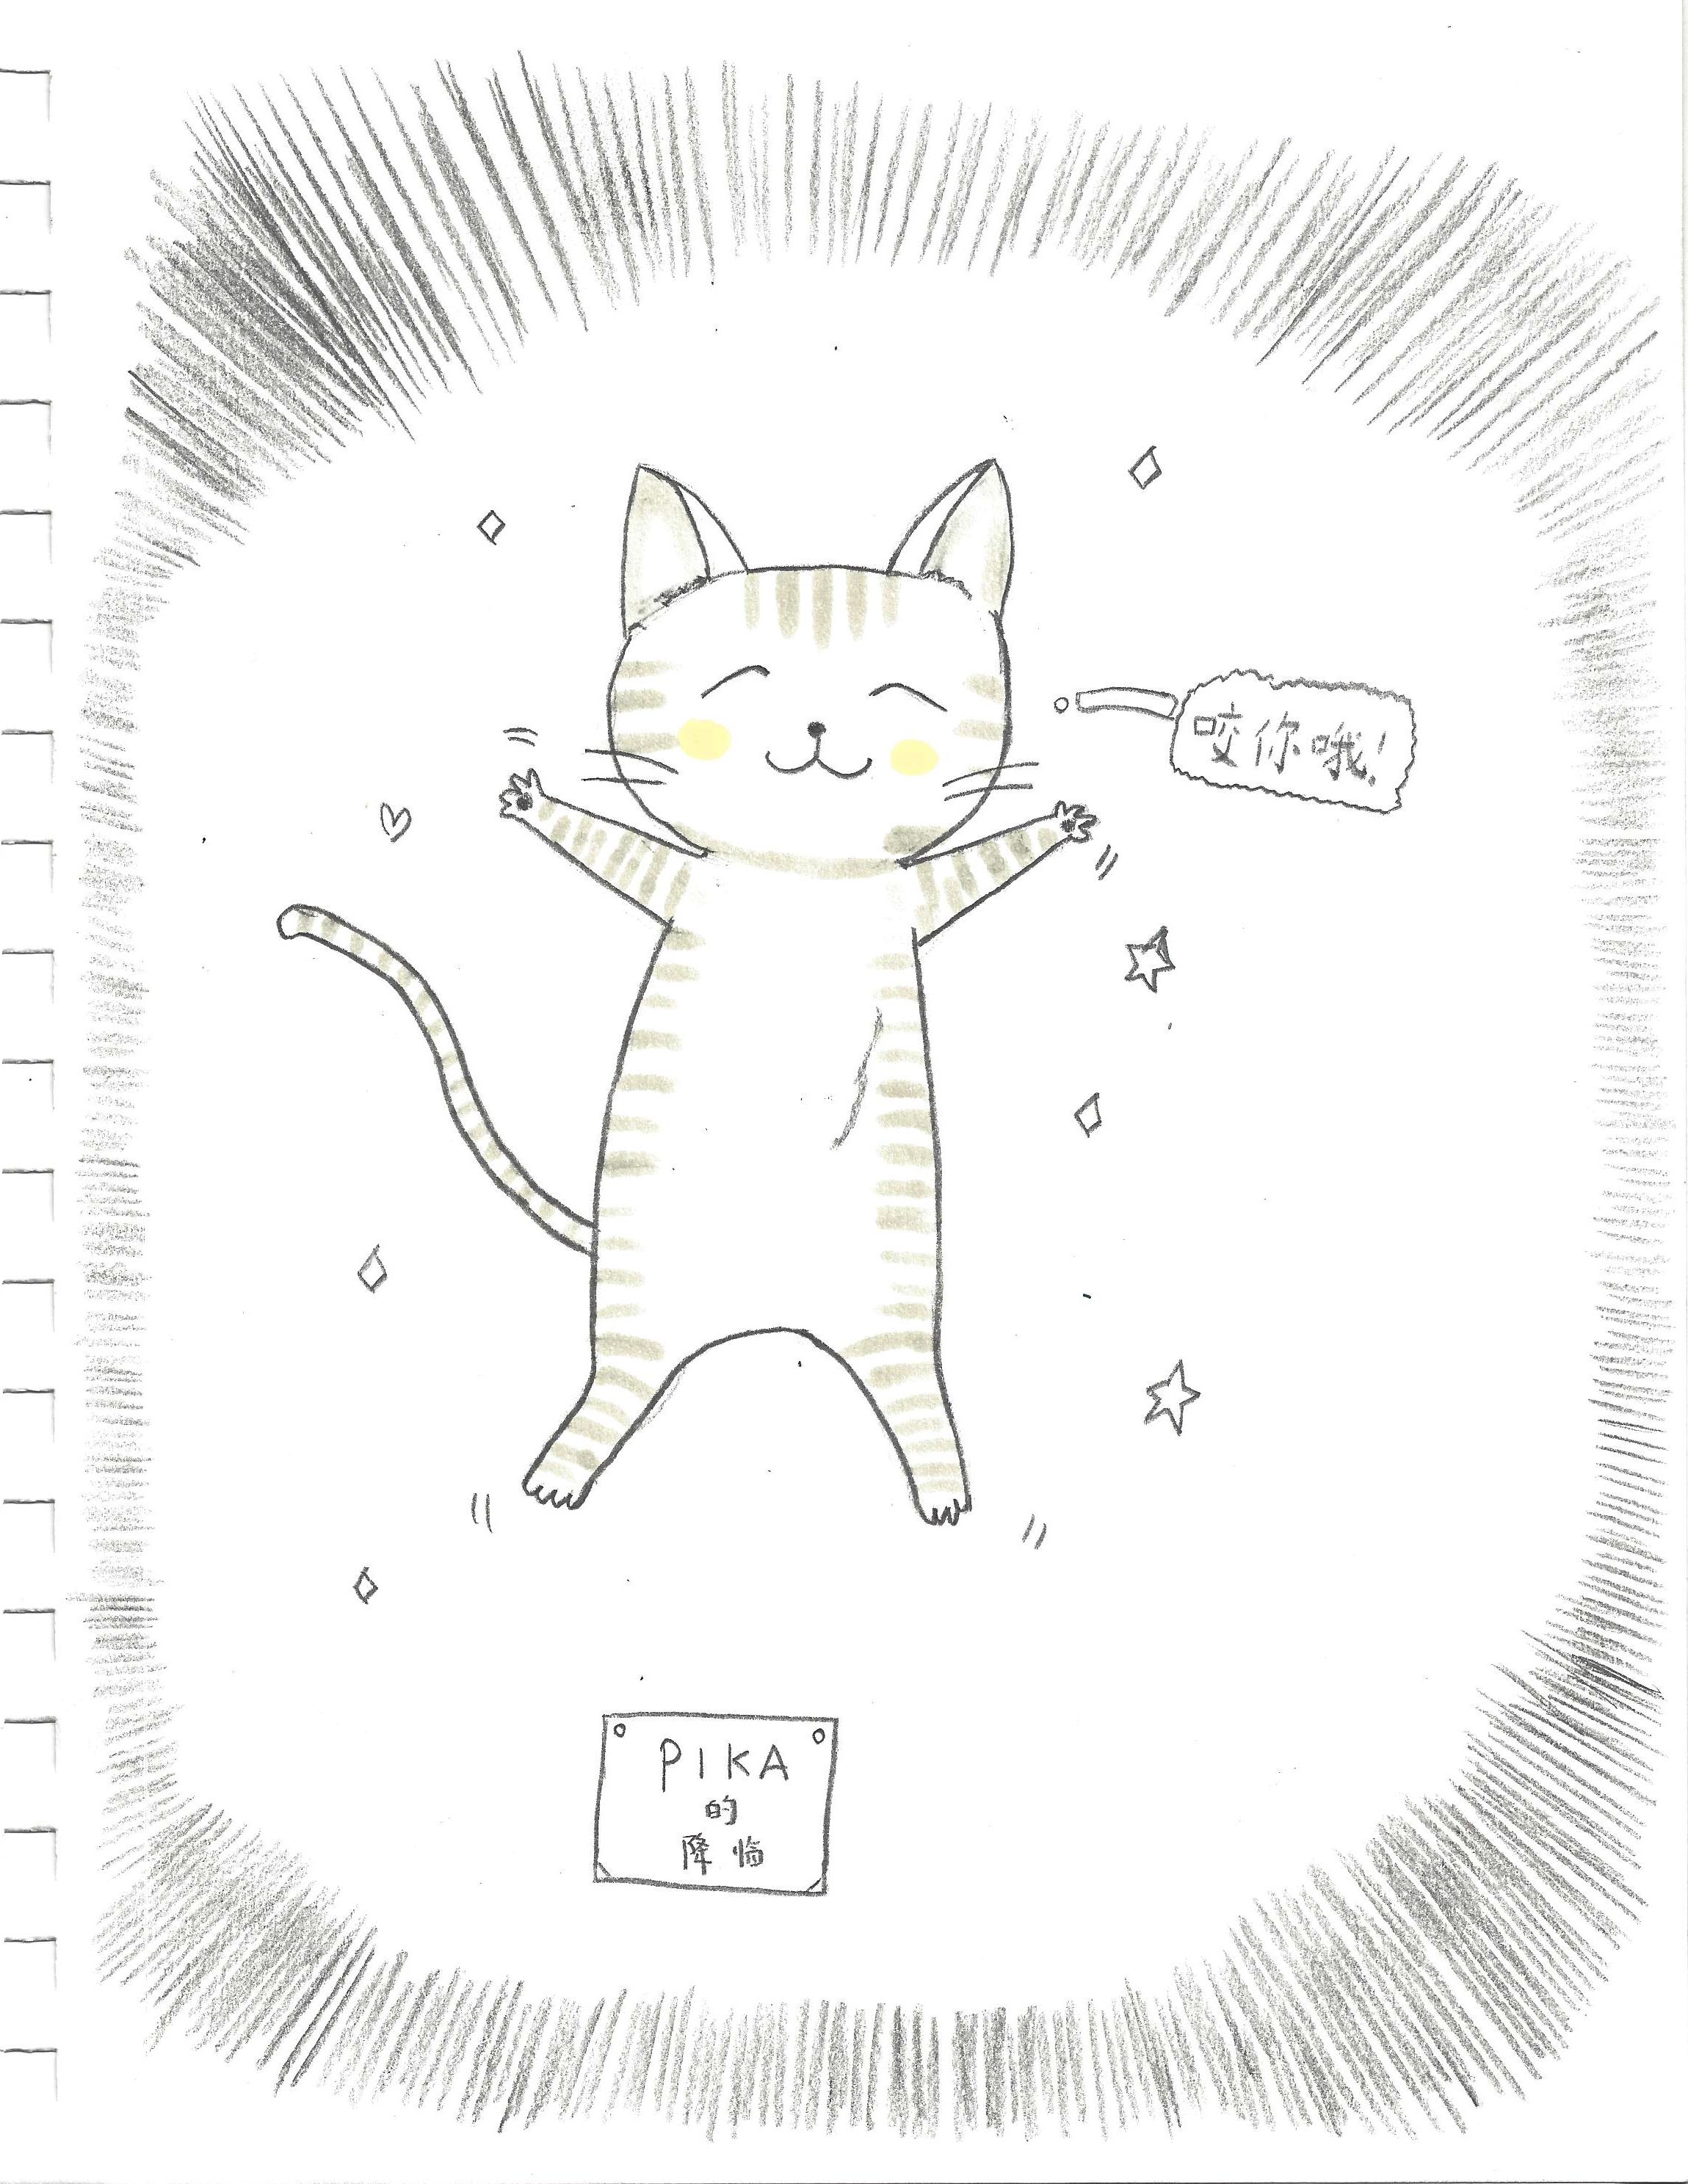 咬你哦!
PIKA
的
降临